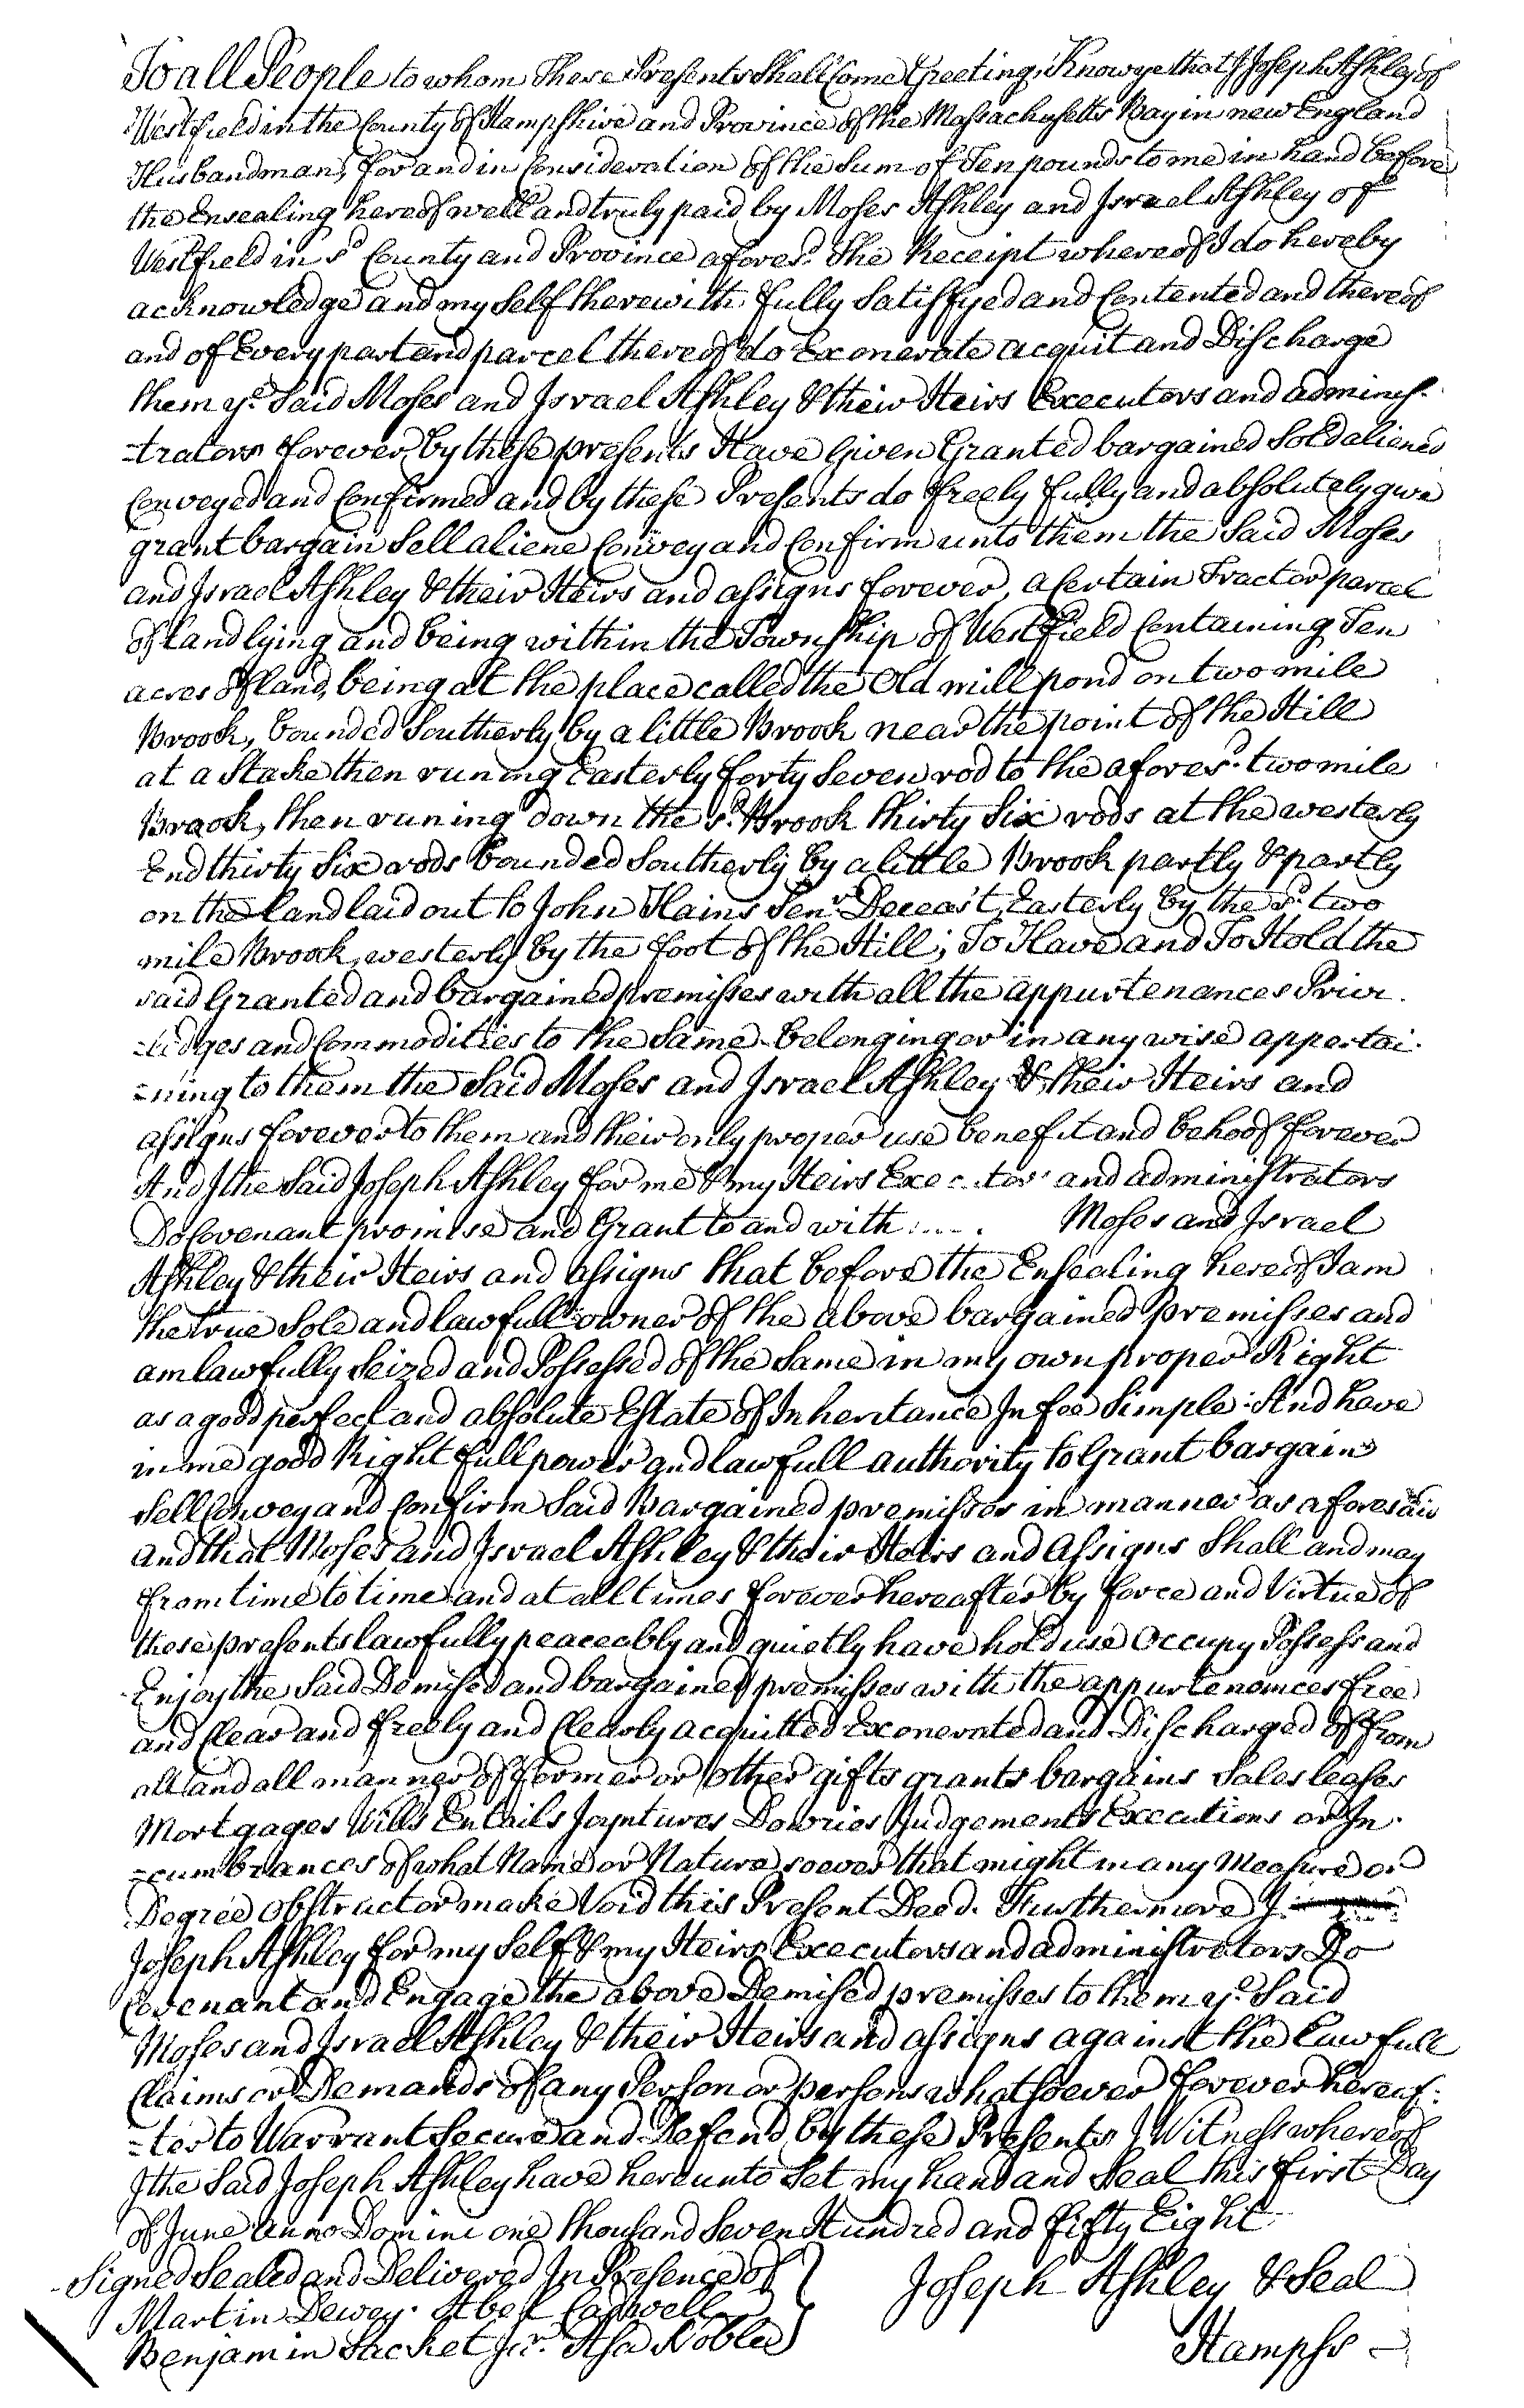 To all People to whom These Presents Shall Come Greeting, Know ye that I Joseph Ashley of
Westfield in the County of Hampshire and Province of the Massachusetts Bay in new England
Husbandman, for and in Consideration of the Sum of Ten pounds to me in hand before
the Ensealing hereof well and truly paid by Moses Ashley and Israel Ashley of
Westfield in sd County and Province afores.d The Receipt whereof I do hereby
acknowledge and my Self therewith fully Satisfyed and Contented and thereof
and of Every part and parcel thereof do Exonerate acquit and Discharge
them ye Said Moses and Israel Ashley & their Heirs Executors and adminis-
-trators forever, by these presents Have Given Granted bargained Sold aliened
Conveyed and Confirmed and by these Presents do freely fully and absolutely give
grant bargain Sell aliene Convey and Confirm unto them the Said Moses
and Israel Ashley & their Heirs and assigns forever, a Certain Tract or parcel
of land lying and being within the Township of Westfield Containing Ten
acres of land, being at the place called the Old mill pond on two mile
Brook, bounded Southerly by a little Brook near the point of the Hill
at a Stake then runing Easterly forty Seven rod to the afores.d two mile
Brook, then runing down the s.d Brook thirty Six rods at the westerly
End thirty Six rods bounded Southerly by a little Brook partly & partly
on the land laid out to John Hains Sen.r Deceas't Easterly by the s.d two
mile Brook, westerly by the foot of the Hill; To Have and To Hold the
said Granted and bargained premisses with all the appurtenances Privi-
-ledges and Commodities to the Same belonging or in any wise appertai-
-ning to them the Said Moses and Israel Ashley & their Heirs and
assigns forever to them and their only proper use benefit and behoof forever
And I the Said Joseph Ashley for me & my Heirs and administrators
Do Covenant promise and Grant to and with Moses and Israel
Ashley & their Heirs and assigns that before the Ensealing hereof I am
the true Sole and lawfull owner of the above bargained premisses and
am lawfully Seized and Possessed of the Same in my own proper Right
as a good perfect and absolute Estate of Inheritance In fee Simple: And have
in me good Right full power and lawfull authority to Grant bargain
Sell Convey and Confirm Said Bargained premisses in manner as aforesaid
and that Moses and Israel Ashley & their Heirs and Assigns Shall and may
from time to time and at all times forever hereafter by force and Virtue of
these presents lawfully peaceably and quietly have hold use Occupy Possess and
Enjoy the Said Demised and bargained premisses with the appurtenances free
and Clear and freely and Clearly acquitted Exonerated and Discharged of from
all and all manner of former or other gifts grants bargains Sales leases
Mortgages Wills Entails Joyntures Dowries Judgements Executions or In-
-cumbrances of what Name or Nature soever that might in any Measure or
Degree obstruct or make Void this Present Deed. Furthermore I
Joseph Ashley for my Self & my Heirs Executors and administrators Do
Covenant and Engage the above Demised premisses to them ye Said
Moses and Israel Ashley & their Heirs and assigns against the lawfull
Claims or Demands of any Person or persons whatsoever forever hereaf-
-ter to Warrant Secure and Defend by these Presents I Witness whereof
I the Said Joseph Ashley have hereunto Set my hand and Seal this first Day
of June anno Domini one thousand Seven Hundred and fifty Eight
Signed Sealed and Delivered In Presence of
Martin Dewey. Abel Cadwell
Benjamin Sacket Jr. Asa Noble
Joseph Ashley & Seal
Hampss